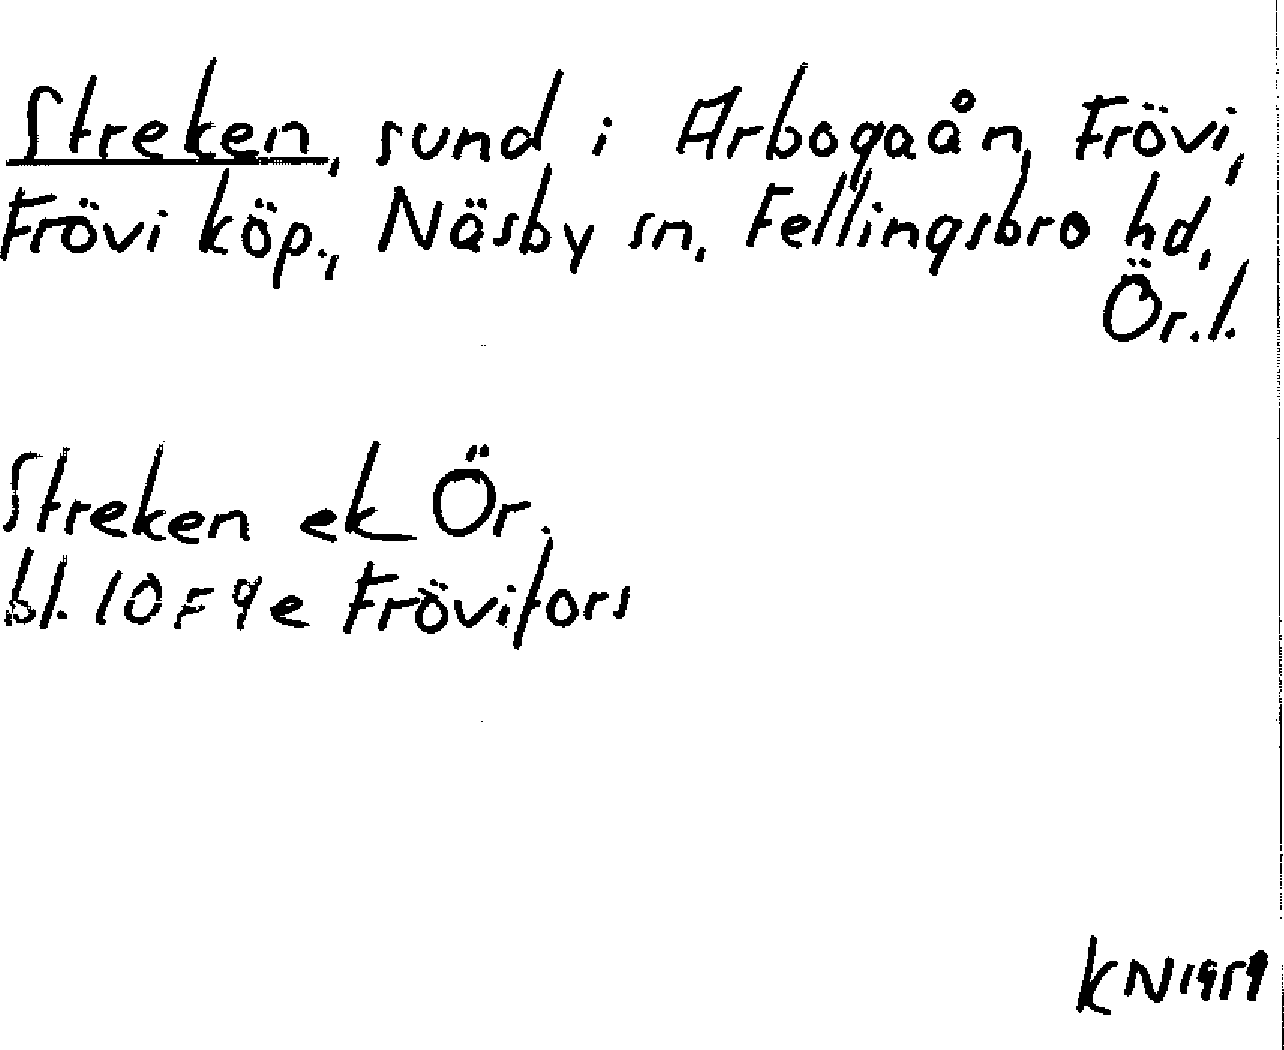 Streken, sund i Arbogaån, Frövi,
Frövi köp., Näsby sn, Fellingsbro hd,
Ör. l.
Streken ek Ör.
bl. 10F9e Frövifors
KN 1959